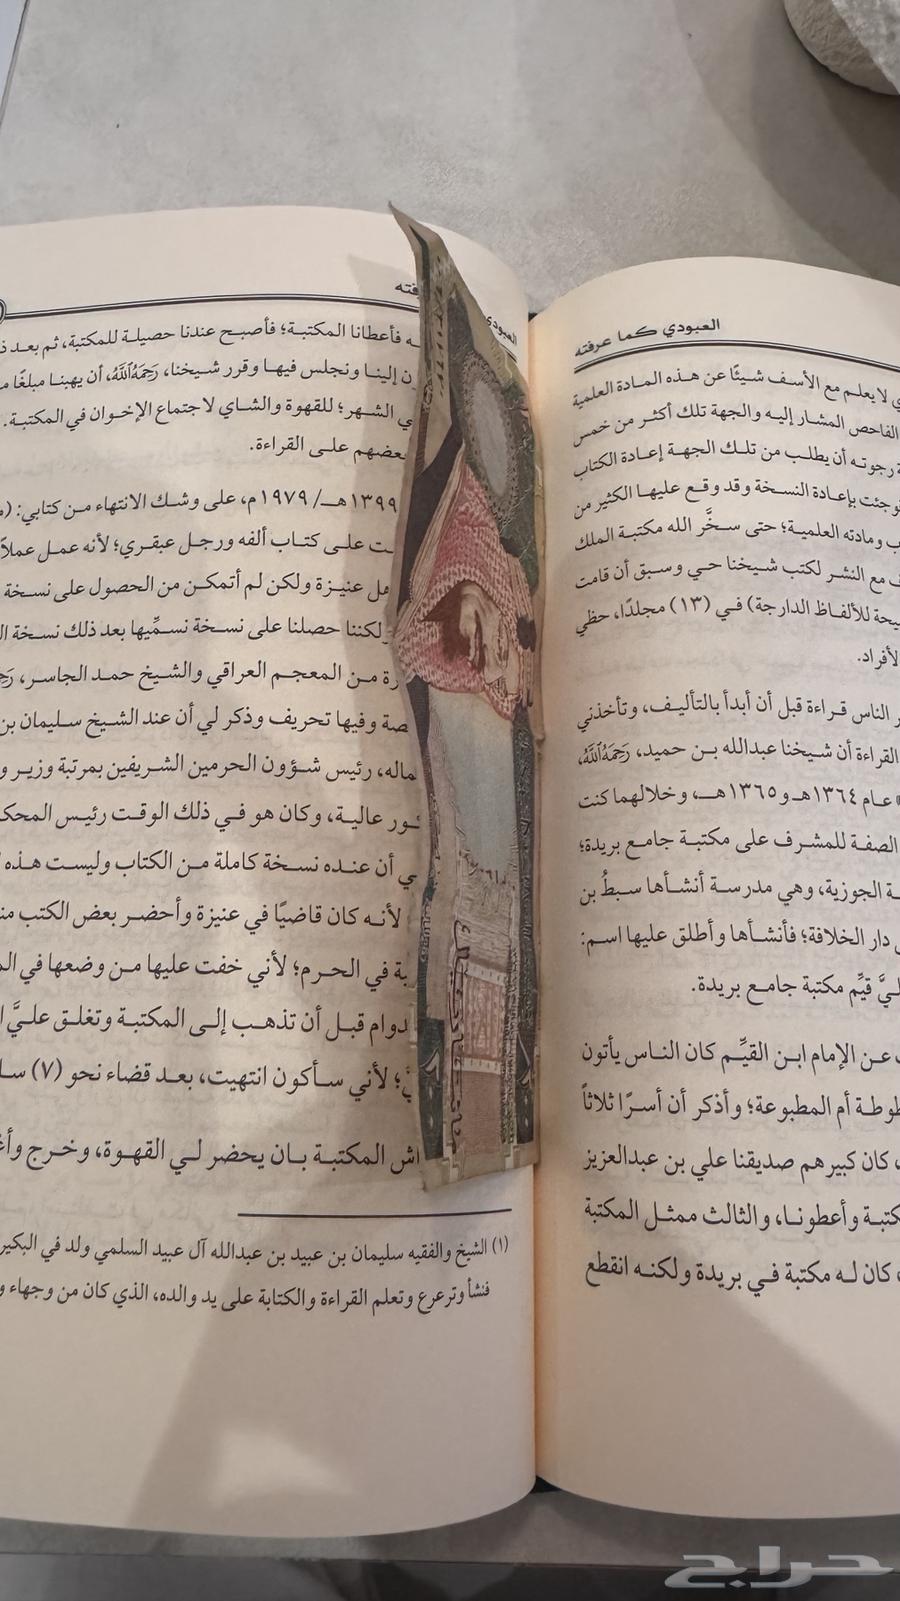 العبودي كما عرفته
ي لا يعلم مع الأسف شيئًا عن هذه المادة العلمية
الفاحص المشار إليه والجهة تلك أكثر من خمس
رجوته أن يطلب من تلك الجهة إعادة الكتاب
وجئت بإعادة النسخة وقد وقع عليها الكثير من
ب ومادته العلمية؛ حتى سخَّر الله مكتبة الملك
ف مع النشر لكتب شيخنا حي وسبق أن قامت
يحة للألفاظ الدارجة) في (١٣) مجلدًا، حظي
لأفراد.
ر الناس قراءة قبل أن أبدأ بالتأليف، وتأخذني
القراءة أن شيخنا عبدالله بن حميد، رَحِمَهُ اللَّهُ،
عام ١٣٦٤هـ و١٣٦٥هـ، وخلالهما كنت
الصفة للمشرف على مكتبة جامع بريدة؛
ة الجوزية، وهي مدرسة أنشأها سبطُ بن
دار الخلافة؛ فأنشأها وأطلق عليها اسم:
ليَّ قيِّم مكتبة جامع بريدة.
عن الإمام ابن القيِّم كان الناس يأتون
طوطة أم المطبوعة؛ وأذكر أن أسرًا ثلاثاً
، كان كبيرهم صديقنا علي بن عبدالعزيز
كتبة وأعطونا، والثالث ممثل المكتبة
كان له مكتبة في بريدة ولكنه انقطع
العبودي
فته
ـه فأعطانا المكتبة؛ فأصبح عندنا حصيلة للمكتبة، ثم بعد ذ
ن إلينا ونجلس فيها وقرر شيخنا، رَحِمَهُ اللَّهُ، أن يهبنا مبلغًا م
ي الشهر؛ للقهوة والشاي لاجتماع الإخوان في المكتبة.
عضهم على القراءة.
١٣٩٩هـ/ ١٩٧٩م، على وشك الانتهاء من كتابي: (م
ـت على كتاب ألفه ورجل عبقري؛ لأنه عمل عملاً
هل عنيزة ولكن لم أتمكن من الحصول على نسخة
لكننا حصلنا على نسخة نسمِّيها بعد ذلك نسخة ال
رة من المعجم العراقي والشيخ حمد الجاسر، رَحِ
صة وفيها تحريف وذكر لي أن عند الشيخ سليمان بن
ماله، رئيس شؤون الحرمين الشريفين بمرتبة وزير و
ـور عالية، وكان هو في ذلك الوقت رئيس المحك
ي أن عنده نسخة كاملة من الكتاب وليست هذه
لأنه كان قاضيًا في عنيزة وأحضر بعض الكتب منـ
بة في الحرم؛ لأني خفت عليها من وضعها في الم
دوام قبل أن تذهب إلى المكتبة وتغلق عليَّ ا
؛ لأني سأكون انتهيت، بعد قضاء نحو (٧) سا
اش المكتبة بان يحضر لي القهوة، وخرج وأغ
(١) الشيخ والفقيه سليمان بن عبيد بن عبدالله آل عبيد السلمي ولد في البكير
فنشأ وترعرع وتعلم القراءة والكتابة على يد والده، الذي كان من وجهاء و
حراج